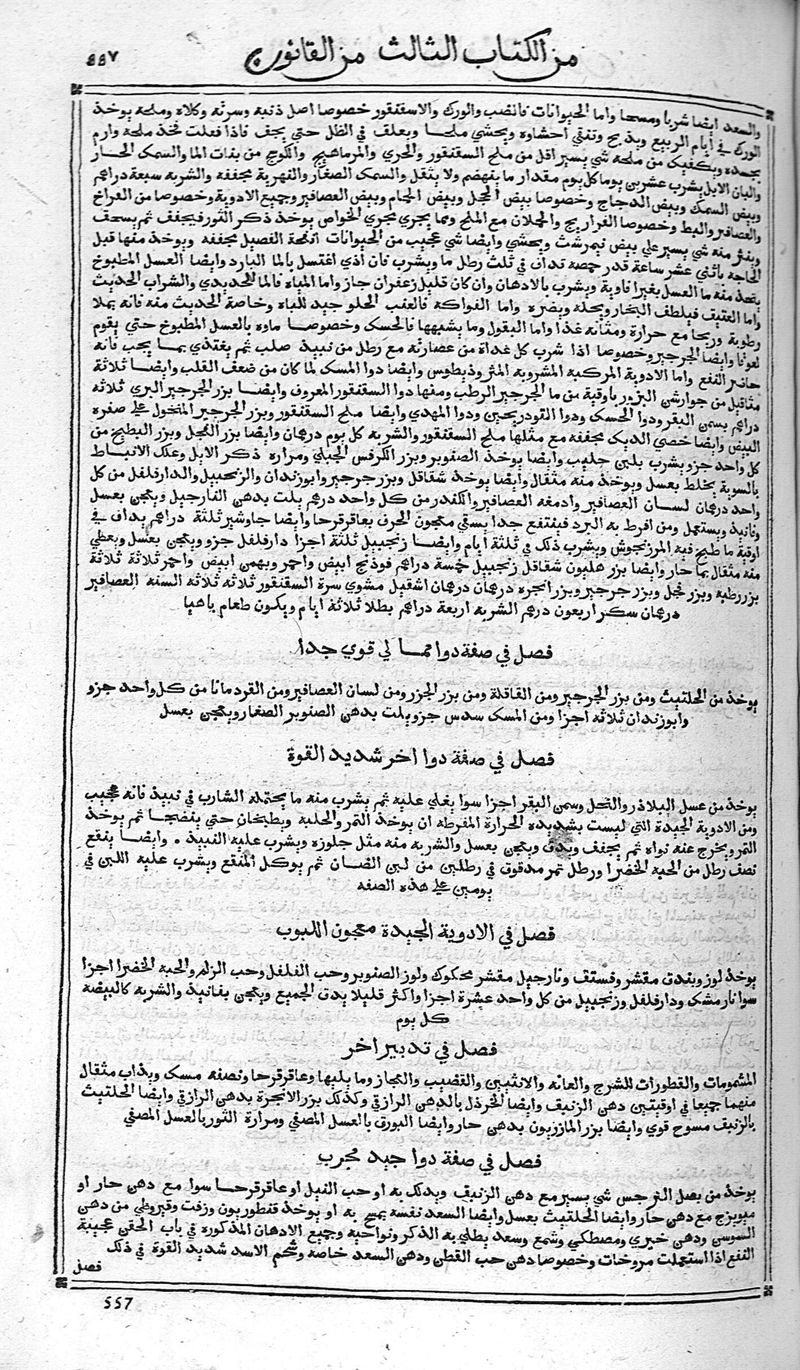 من الكتاب الثالث من القانون
٥٥٧
والسعد ايضا شربا ومسحا واما الحيوانات فالضب والورل والاسقنقور خصوصا اصل ذنبه وسرته وكلاه وملحه يوخذ
الورل في ايام الربيع ويذبح وتنقي احشاوه ويحشي ملحا ويعلف في الظل حتي يجف فاذا فعلت فخذ ملحه وارم
بجسده ويكفيك من ملحه شي يسير اقل من ملح السقنقور والجري والمرماهيج والكوج من بقات الما والسمك الحار
والبان الابل يشرب عشرين يوما كل يوم مقدار ما يهضم ولا يثقل والسمك الصغار والنهرية مجففه والشربه سبعة دراهم
وبيض السمك وبيض الدجاج وخصوصا بيض الحجل وبيض الحمام وبيض العصافير وجميع الادوية وخصوصا من الفراخ
والعصافير والبط وخصوصا الفراريج والحملان مع الملح ومما يجري مجري الخواص يوخذ ذكر الثور فيجفف ثم يسحف
وينثر منه شي يسير علي بيض نيمرشت ويحشي وايضا شي عجيب من الحيوانات انفحة الفصيل مجففه ويوخذ منها قبل
الحاجه باثني عشر ساعة قدر حمصه تداف في ثلث رطل ما ويشرب فان اذي اغتسل بالما البارد وايضا العسل المطبوخ
يتخذ منه ما العسل بغير افاوية ويشرب بالادهان وان كان قليل زعفران جاز واما المياه فالما الحديدي والشراب الحديث
واما العتيق فيلطف البخار ويحله ويضره واما الفواكة فالعنب الحلو جيد للباه وخاصة الحديث منه فانه يملا
رطوبة وريحا مع حرارة ومثانه غذا واما البقول وما يشبهها فالحسك وخصوصا ماوه بالعسل المطبوخ حتي يقوم
لعوقا وايضا الجرجير وخصوصا اذا شرب كل غداة من عصارته مع رطل من نبيذ صلب ثم يغتذي بما يجب فانه
حاضر النفع واما الادوية المركبه المشروبه المثروذيطوس وايضا دوا المسك لما كان من ضعف القلب وايضا ثلاثة
مثاقيل من جوارشن البزور باوقية من ما الجرجير الرطب ومنها دوا السقنقور المعروف وايضا بزر الجرجير البري ثلاثه
دراهم بسمن البقر ودوا الحسك ودوا التودريحين ودوا المهدي وايضا ملح السقنقور وبزر الجرجير المنخول علي صفره
البيض وايضا خصي الديك مجففه مع مثلها ملح السقنقور والشربه كل يوم درهمان وايضا بزر الفجل وبزر البطيخ من
كل واحد جزو يشرب بلبن حليب وايضا يوخذ الصنوبر وبزر الكرفس الجبلي ومراره ذكر الايل وعلك الانباط
بالسوية يخلط بعسل ويوخذ منه مثقال وايضا يوخذ شقاقل وبزر جرجير وابوزيدان والزنجبيل والدارفلفل من كل
واحد درهمان لسان العصافير وادمغه العصافير والكندر من كل واحد درهم يلت بدهن النارجيل ويعجن بعسل
وفانيد ويستعمل ومن افرط به البرد فينتفع جدا بستي معجون الحرف بعاقرقرحا وايضا جاوشير ثلثة دراهم يداف في
اوقية ما طبخ فيه المرزنجوش ويشرب ذلك في ثلثة ايام وايضا زنجبيل ثلثة اجزا دارفلفل جزو ويعجن بعسل ويعطي
منه مثقال بما حار وايضا بزر هليون شقاقل زنجبيل خمسة دراهم فوذنج ابيض واحمر وبهمن ابيض واحمر ثلاثة ثلاثة
بزر رطبه وبزر فجل وبزر جرجير وبزر انجره درهمان درهمان اشقيل مشوي سرة السقنقور ثلاثه ثلاثه السنه العصافير
درهمان سكر اربعون درهم الشربه اربعة دراهم بطلا ثلاثة ايام ويكون طعام باهيا
فصل في صفة دوا مما لي قوي جدا
يوخذ من الحلتيث ومن بزر الجرجير ومن القاقلة ومن بزر الجزر ومن لسان العصافير ومن القردمانا من كل واحد جزو
وابوزيدان ثلاثه اجزا ومن المسك سدس جزو يلت بدهن الصنوبر الصغار ويعجن بعسل
فصل في صفة دوا اخر شديد القوة
يوخذ من عسل البلاذر والنحل وسمن البقر اجزا سوا يغلي عليه ثم يشرب منه ما يحتمله الشارب في نبيذ فانه عجيب
ومن الادوية الجيدة التي ليست بشديده الحرارة المفرطه ان يوخذ التمر والحلبه ويطبخان حتي ينضجا ثم يوخذ
التمر ويخرج عنه نواه ثم يجفف ويدق ويعجن بعسل والشربه منه مثل جلوزه ويشرب عليه النبيذ . وايضا ينقع
نصف رطل من الحبه الخضرا ورطل تمر مدقوق في رطلين من لبن الضان ثم يوكل المنقع ويشرب عليه اللبن في
يومين علي هذه الصفه
فصل في الادوية الجيدة معجون اللبوب
يوخذ لوز وبندق مقشر وفستق ونارجيل مقشر محكوك ولوز الصنوبر وحب الفلفل وحب الزلم والحبه الخضرا اجزا
سوا نارمشك ودارفلفل وزنجبيل من كل واحد عشرة اجزا واكثر قليلا يدق الجميع ويعجن بفانيذ والشربه كالبيضه
كل يوم
فصل في تدبير اخر
المشمومات والقطورات للشرج والعانه والانثيين والقضيب والعجاز وما يليها وعاقرقرحا ونصفه مسك ويذاب مثقال
منهما جميعا في اوقيتين دهن الزنبق وايضا الخرذل بالدهن الرازقي وكذلك بزر الانجرة بدهن الرازقي وايضا الحلتيث
بالزنبق مسوح قوي وايضا بزر المازريون بدهن حار وايضا البورق بالعسل المصفي ومرارة الثور بالعسل المصفي
فصل في صفة دوا جيد مجرب
يوخذ من بصل النرجس شي يسير مع دهن الزنبق ويدلك به او حب النيل او عاقرقرحا سوا مع دهن حار او
ميويزج مع دهن حار وايضا الحلتيث بعسل وايضا السعد نفسه يمسح به او يوخذ قنطوريون وزفت وقيروطي من دهن
السوسن ودهن خيري ومصطكي وشمع وسعد يطلي به الذكر ونواحيه وجميع الادهان المذكوره في باب الحقن عجيبة
النفع اذا استعملت مروخات وخصوصا دهن حب القطن ودهن السعد خاصة وشحم الاسد شديد القوة في ذلك
فصل
557